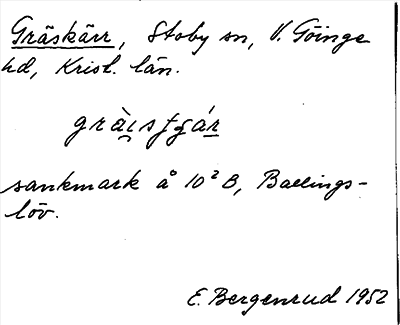 Gräskärr, Stoby sn, V. Göinge
hd, Krist. län.
sankmark å 10² B, Ballings-
löv.
E. Bergenrud 1952